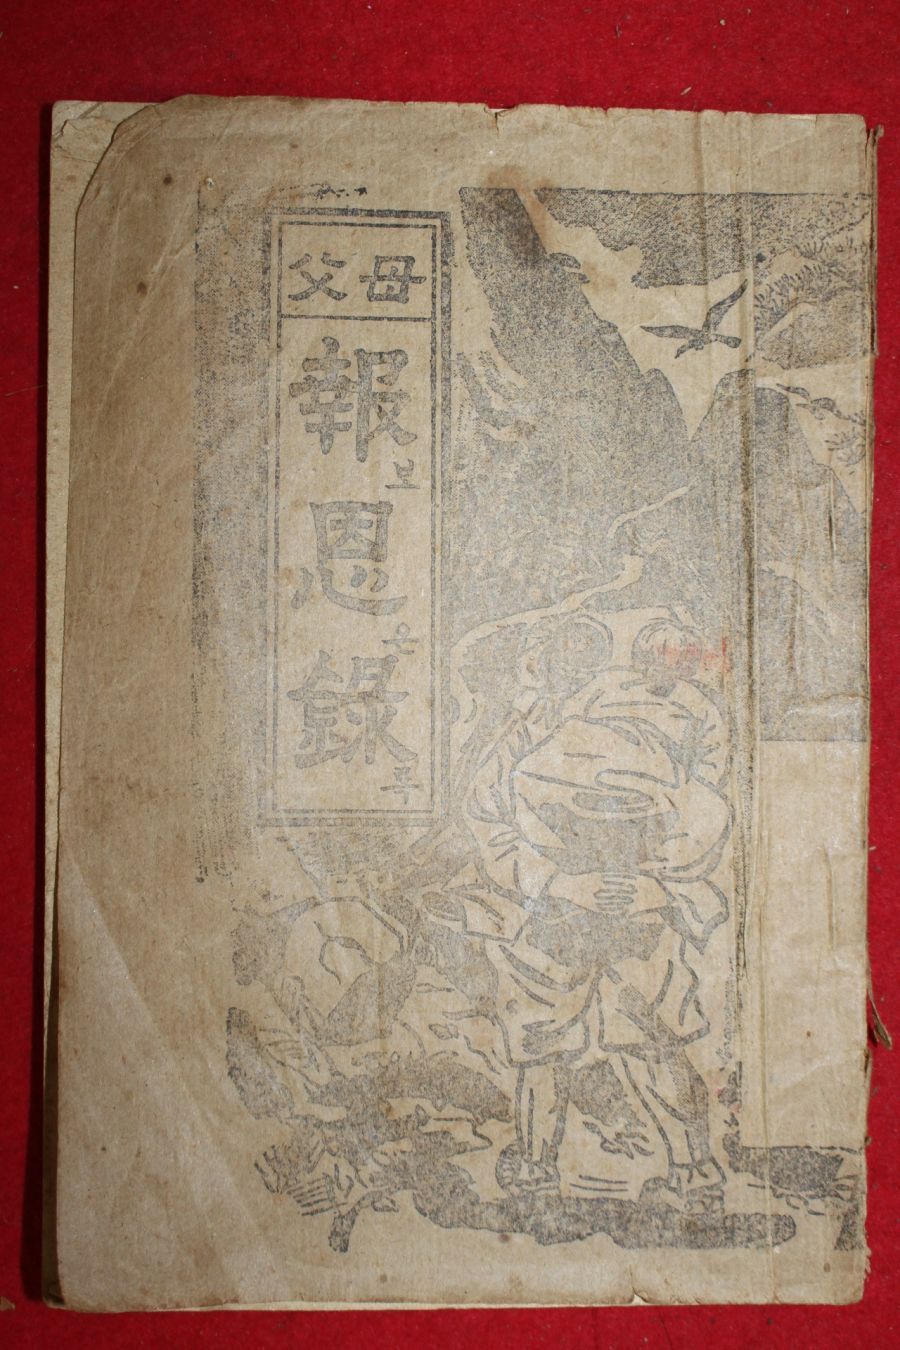 父母
報보
恩은
錄록